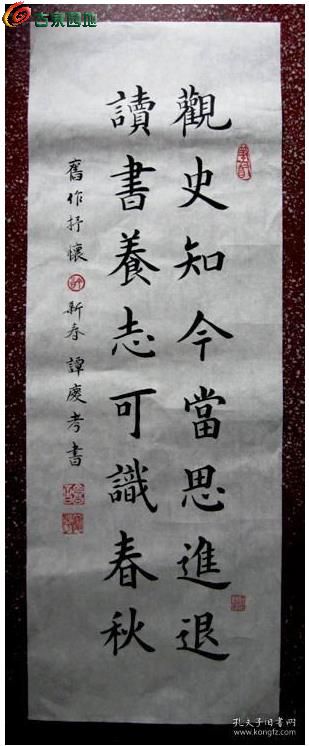 古泉园地
觀史知今當思進退
讀書養志可識春秋
舊作抒懷 新春 譚慶考書
孔夫子旧书网
www.kongfz.com